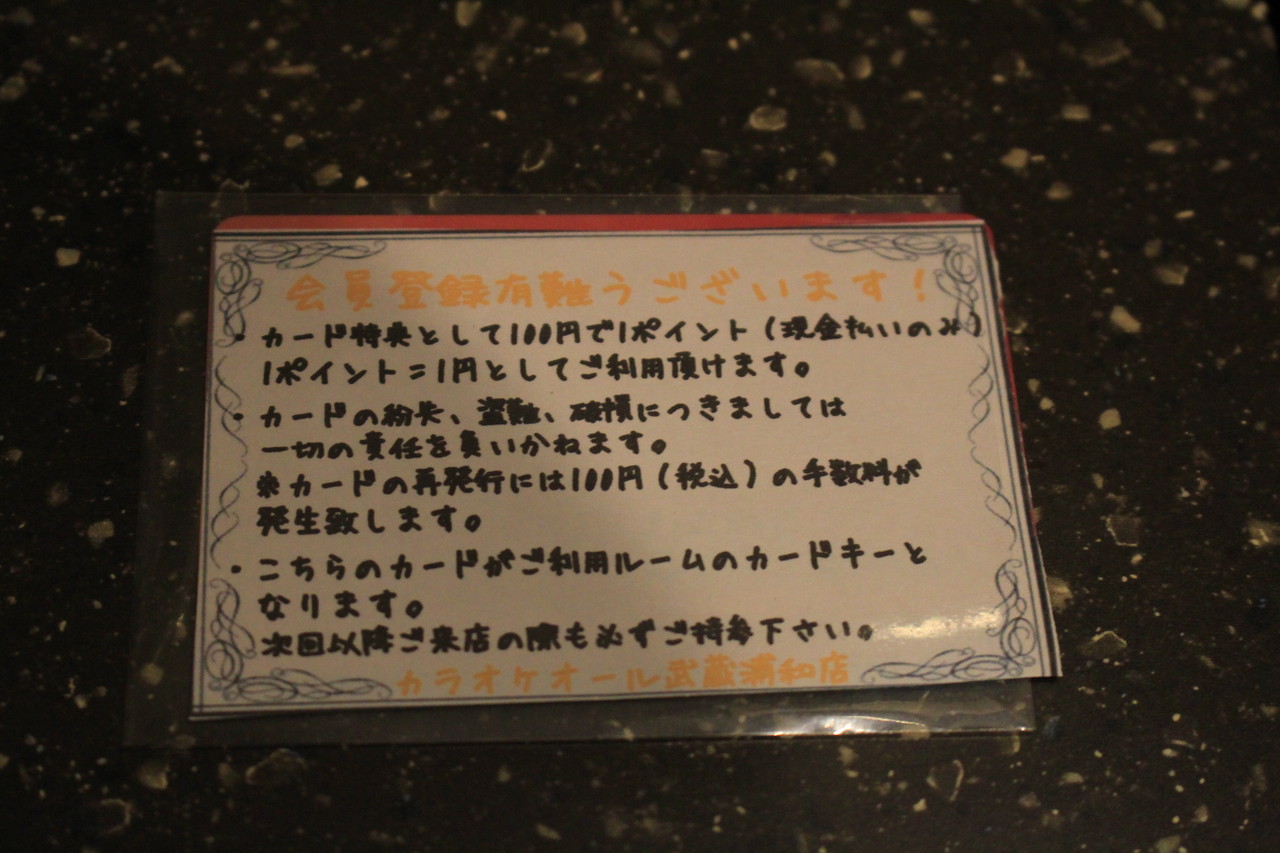 会員登録有難うございます！
・カード特典として100円で1ポイント（現金払いのみ）
1ポイント=1円としてご利用頂けます。
・カードの紛失、盗難、破損につきましては
一切の責任を負いかねます。
※カードの再発行には100円（税込）の手数料が
発生致します。
・こちらのカードがご利用ルームのカードキーと
なります。
次回以降ご来店の際も必ずご持参下さい。
カラオケオール武蔵浦和店